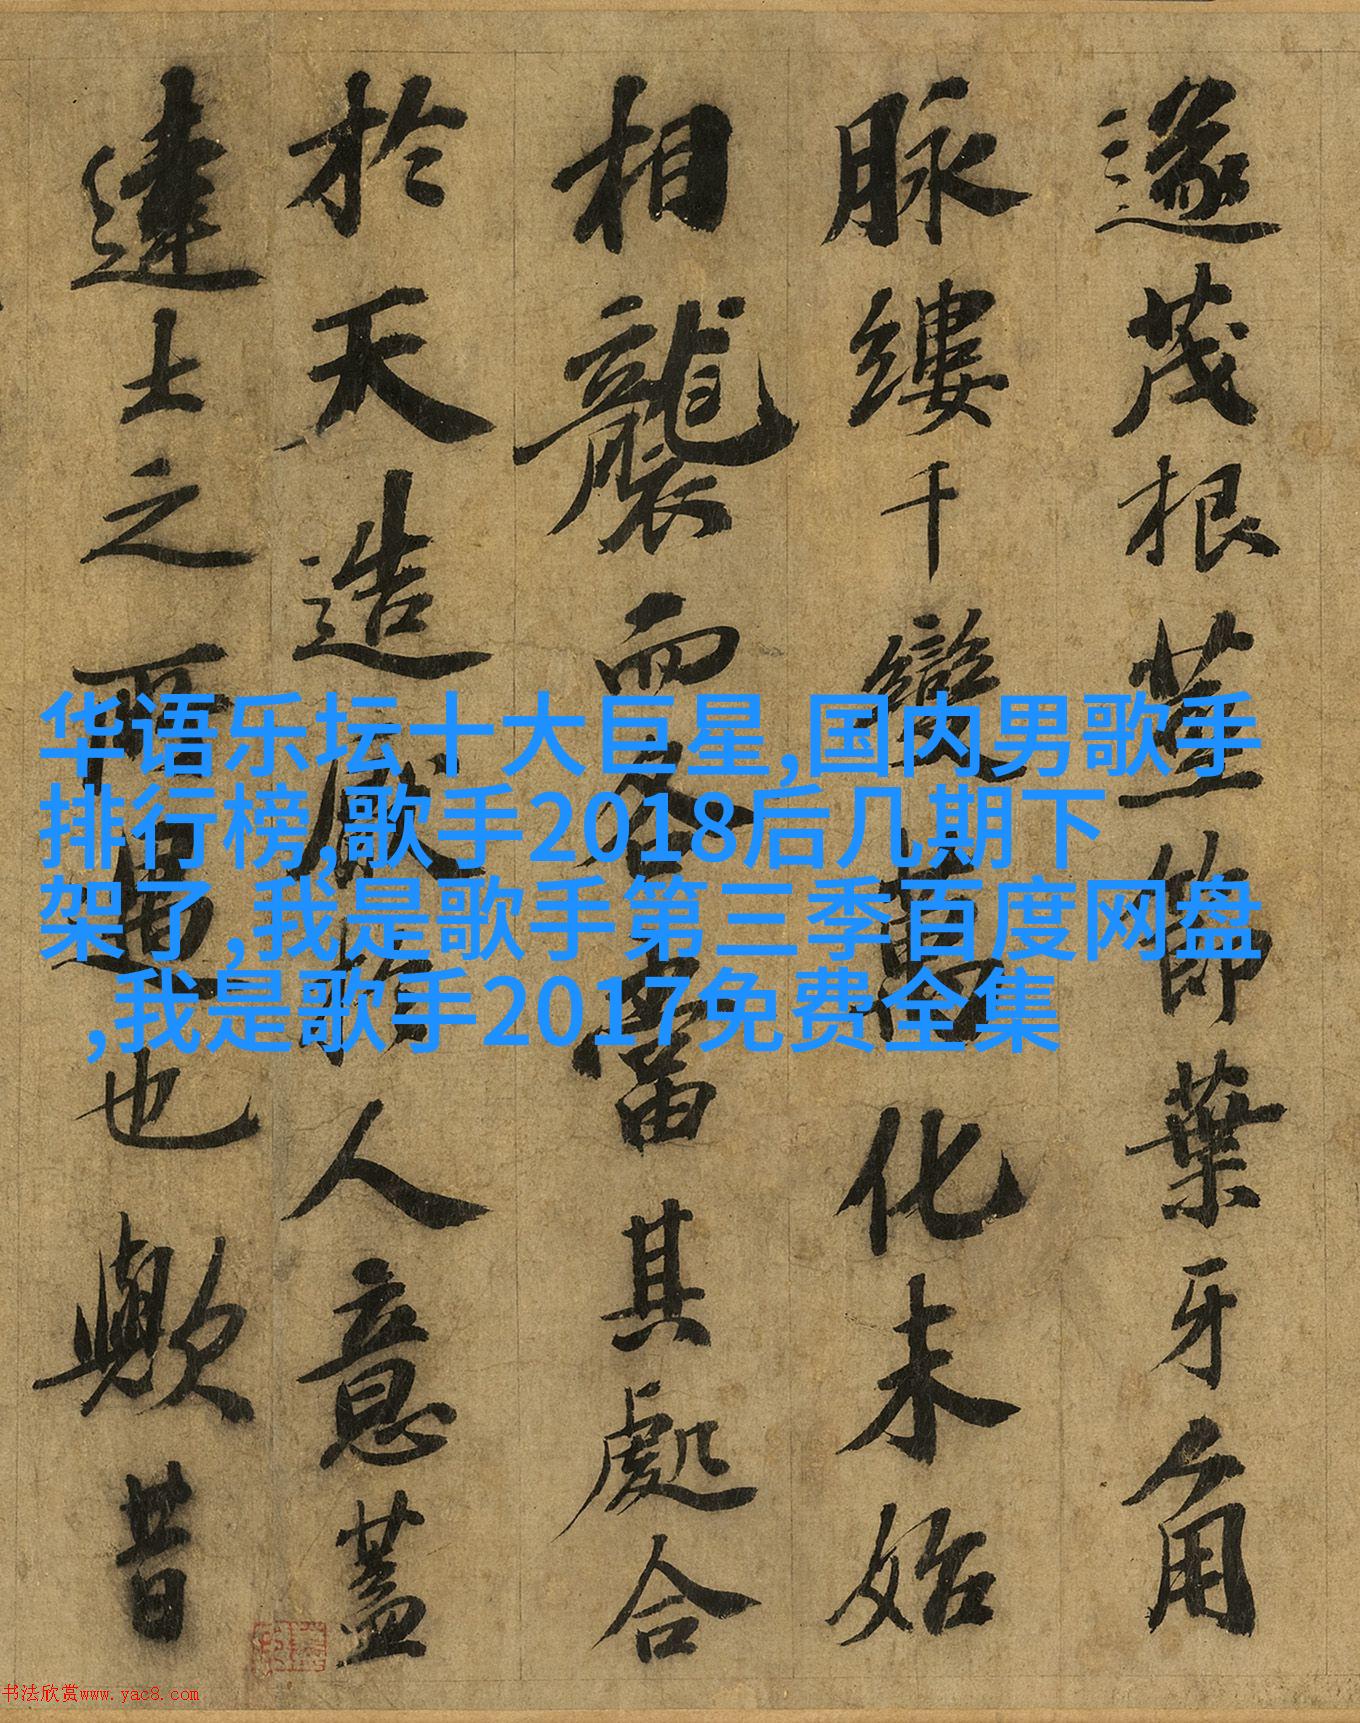 遂茂根莖節葉牙角
脉縷千變萬化未始
相襲而各當其處合
於天造厭於人意蓋
達士之所寓也歟昔
华语乐坛十大巨星,国内男歌手
排行榜,歌手2018后几期下
架了,我是歌手第三季百度网盘
,我是歌手2017免费全集
书法欣赏www.yac8.com